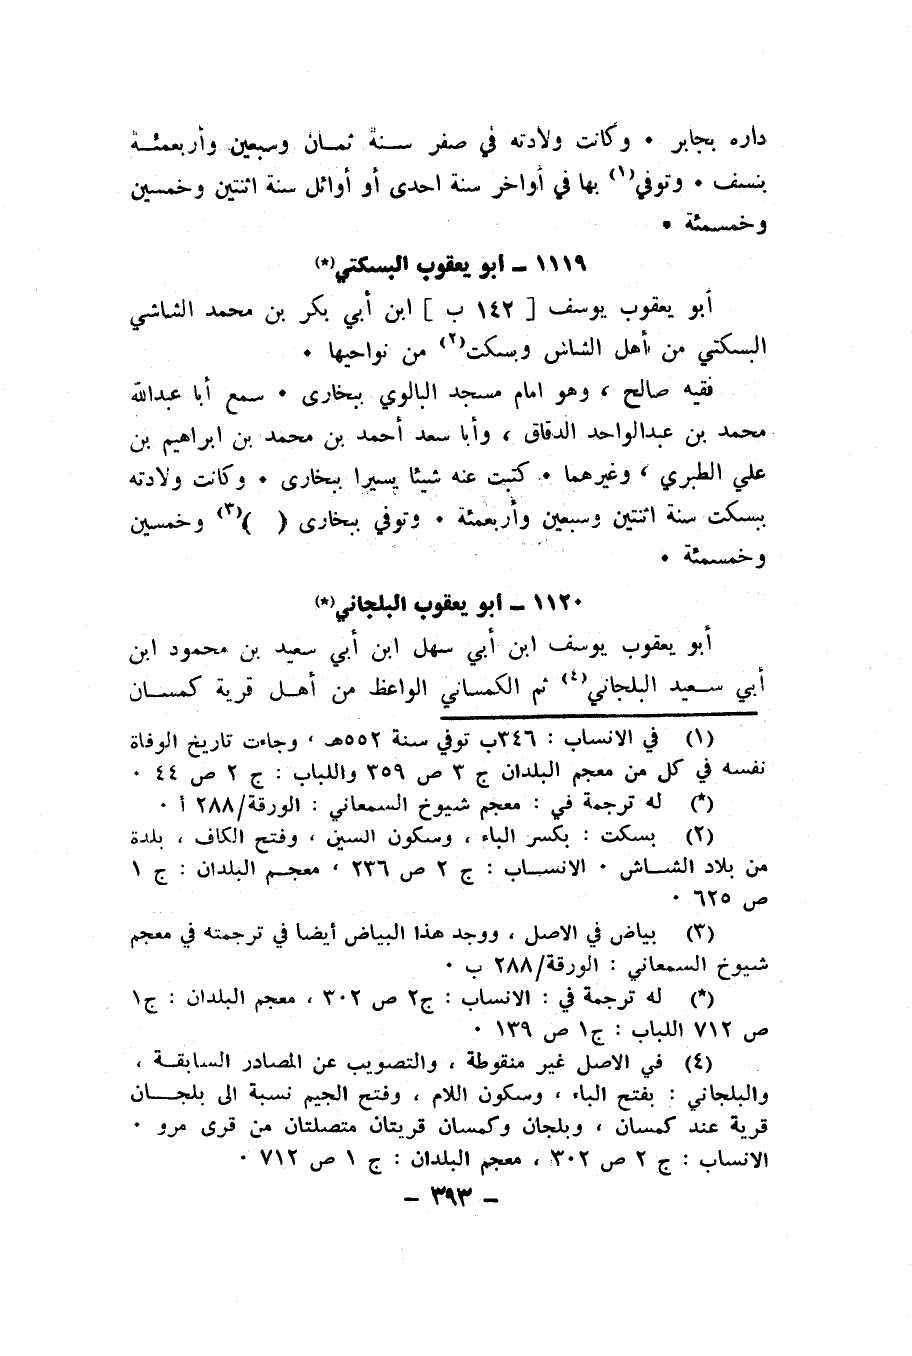 داره بجابر ٠ وكانت ولادته في صفر سنة ثمان وسبعين وأربعمئة
بنسف ٠ وتوفي(١) بها في أواخر سنة احدى أو أوائل سنة اثنتين وخمسين
وخمسمئة ٠
١١١٩ ـ أبو يعقوب البسكتي(*)
أبو يعقوب يوسف [ ١٤٢ ب ] ابن أبي بكر بن محمد الشاشي
البسكتي من أهل الشاش وبسكت(٢) من نواحيها ٠
فقيه صالح ، وهو امام مسجد البالوي ببخارى ٠ سمع أبا عبدالله
محمد بن عبدالواحد الدقاق ، وأبا سعد أحمد بن محمد بن ابراهيم بن
علي الطبري ، وغيرهما ٠ كتبت عنه شيئا يسيرا ببخارى ٠ وكانت ولادته
ببسكت سنة اثنتين وسبعين وأربعمئة ٠ وتوفي ببخارى ( )(٣) وخمسين
وخمسمئة ٠
١١٢٠ ـ أبو يعقوب البلجاني(*)
أبو يعقوب يوسف ابن أبي سهل ابن أبي سعيد بن محمود ابن
أبي سعيد البلجاني(٤) ثم الكمساني الواعظ من أهل قرية كمسان
(١) في الانساب : ٣٤٦ب توفي سنة ٥٥٢هـ ، وجاءت تاريخ الوفاة
نفسه في كل من معجم البلدان ج ٣ ص ٣٥٩ واللباب : ج ٢ ص ٤٤ ٠
(*) له ترجمة في : معجم شيوخ السمعاني : الورقة/٢٨٨ أ ٠
(٢) بسكت : بكسر الباء ، وسكون السين ، وفتح الكاف ، بلدة
من بلاد الشاش ٠ الانساب : ج ٢ ص ٢٣٦ ، معجم البلدان : ج ١
ص ٦٢٥ ٠
(٣) بياض في الاصل ، ووجد هذا البياض أيضا في ترجمته في معجم
شيوخ السمعاني : الورقة/٢٨٨ ب ٠
(*) له ترجمة في : الانساب : ج٢ ص ٣٠٢ ، معجم البلدان : ج١
ص ٧١٢ اللباب : ج١ ص ١٣٩ ٠
(٤) في الاصل غير منقوطة ، والتصويب عن المصادر السابقة ،
والبلجاني : بفتح الباء ، وسكون اللام ، وفتح الجيم نسبة الى بلجان
قرية عند كمسان ، وبلجان وكمسان قريتان متصلتان من قرى مرو ٠
الانساب : ج ٢ ص ٣٠٢ ، معجم البلدان : ج ١ ص ٧١٢ ٠
ـ ٣٩٣ ـ